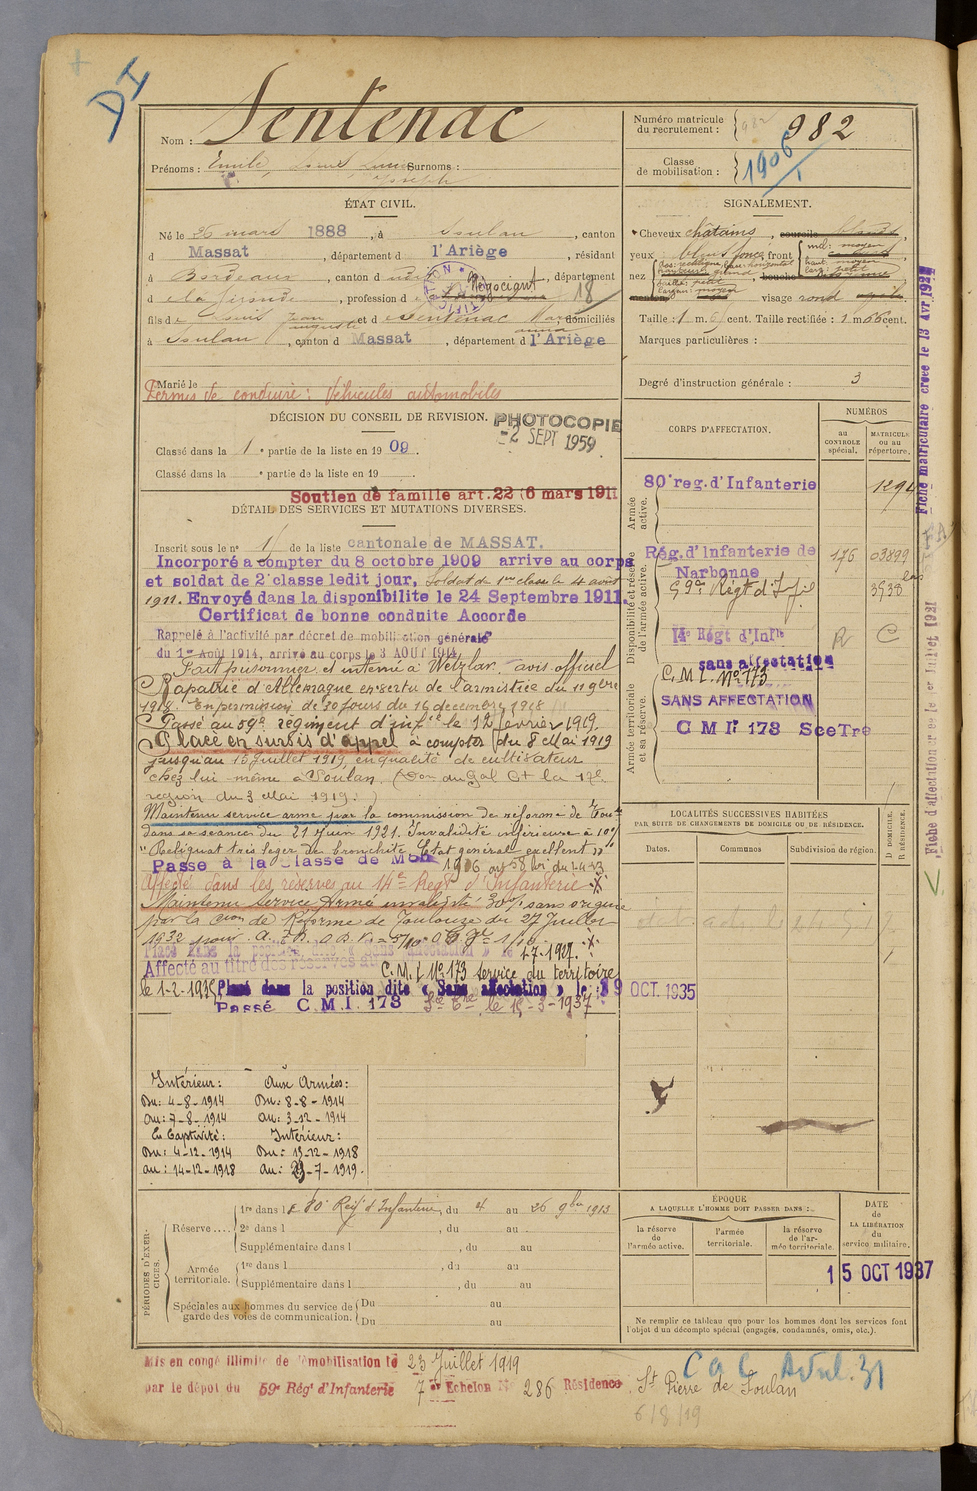 DI
Nom : Sentenac
Prénoms : Émile, Surnoms :
Joseph
Numéro matricule
du recrutement : 982
Classe
de mobilisation : 1906
ÉTAT CIVIL.
Né le 26 mars 1888, à Soulan, canton
d Massat, département d l'Ariège, résidant
à Bordeaux, canton d, département
d e la Gironde, profession d Négociant 18
fils de Jean
Auguste et d e Sentenac, domiciliés
anna
à Soulan, canton d Massat, département d l'Ariège
Marié le
Permis de conduire : Véhicules automobiles
SIGNALEMENT.
Cheveux châtains, sourcils
yeux bleu foncé, front incl: moyen
haut: moyen
larg: petit
nez dos: rectiligne, base: horizontal
saillie: petit
largeur: moyen
visage rond
Taille : 1 m. cent. Taille rectifiée : 1 m 66 cent.
Marques particulières :
Degré d'instruction générale : 3
DÉCISION DU CONSEIL DE REVISION.
PHOTOCOPIE
-2 SEPT 1959
Classé dans la 1 e partie de la liste en 1909.
Classé dans la e partie de la liste en 19
Soutien de famille art. 22 (6 mars 1911
DÉTAIL DES SERVICES ET MUTATIONS DIVERSES.
Inscrit sous le n° 1 de la liste cantonale de MASSAT.
Incorporé a compter du 8 octobre 1909 arrive au corps
et soldat de 2e classe ledit jour, Soldat de 1re classe le 4 août
1911. Envoyé dans la disponibilite le 24 Septembre 1911.
Certificat de bonne conduite Accorde
Rappelé à l'activité par décret de mobilisation générale
du 1er Août 1914, arrivé au corps le 3 AOUT 1914
Fait prisonnier et interné à Wetzlar avis officiel
C Rapatrié d'Allemagne en vertu de l'armistice du 11 9bre
1918. En permission de 30 jours du 16 decembre 1918
C Passé au 59e régiment d'infie le 12 fevrier 1919.
Placé en sursis d'appel à compter du 8 Mai 1919
jusqu'au 15 juillet 1919, en qualité de cultivateur
chez lui-même à Soulan (Don du Gal Ct la 17e
region du 3 Mai 1919.)
Maintenu service armé par la commission de réforme de
dans sa séance du 21 juin 1921. Invalidité inférieure à 10%
"Reliquat très léger de bronchite. Etat général excellent"
Passe à la classe de Mob 1906
Affecté dans les réserves au 14e Regt d'Infanterie
Maintenu Service Armé invalidité 30% sans origine
par la Con de Réforme de Toulouse du 27 Juillet
1932 pour
1-7-1927.
Affecté au titre des réserves au C.M.I. No 173 service du territoire
le 1-2-1935, Placé dans la position dite « Sans affectation » le 9 OCT. 1935
Passé C.M.I. 173 le 15-3-1937
CORPS D'AFFECTATION.
NUMÉROS
au
CONTROLE
spécial.
MATRICULE
ou au
répertoire.
Armée
active.
80e reg. d'Infanterie 1294
Disponibilité et réserve
de l'armée active.
Rég. d'Infanterie de
Narbonne 176 03899
59me Régt d'Inf 3538
14e Régt d'Infie R C
Armée territoriale
et sa réserve.
sans affectation
C.M.I. No 173
SANS AFFECTATION
C M I. 173 SceTre
LOCALITÉS SUCCESSIVES HABITÉES
PAR SUITE DE CHANGEMENTS DE DOMICILE OU DE RÉSIDENCE.
Dates. Communes Subdivision de région. D DOMICILE. R RÉSIDENCE.
Intérieur : Aux Armées :
Du : 4-8-1914 Du : 8-8-1914
au : 7-8-1914 au : 3-12-1914
En Captivité : Intérieur :
Du : 4-12-1914 Du : 15-12-1918
au : 14-12-1918 au : 23-7-1919.
PÉRIODES D'EXERCICES.
Réserve .... 1re dans le 80 Reg. d'Infanterie, du 4 au 26 9bre 1913
2e dans l, du au
Supplémentaire dans l, du au
Armée
territoriale. 1re dans l, du au
Supplémentaire dans l, du au
Spéciales aux hommes du service de
garde des voies de communication. Du au
Du au
ÉPOQUE
A LAQUELLE L'HOMME DOIT PASSER DANS :
la réserve
de
l'armée active.
l'armée
territoriale.
la réserve
de l'ar-
mée territoriale.
DATE
de
LA LIBÉRATION
du
service militaire.
15 OCT 1937
Ne remplir ce tableau que pour les hommes dont les services font
l'objet d'un décompte spécial (engagés, condamnés, omis, etc.).
Mis en congé illimité de démobilisation le 23 Juillet 1919
par le dépôt du 59e Régt d'Infanterie 7e Echelon N° 286 Résidence St Pierre de Soulan
6/8/19
C a C Avril. 31
Fiche matriculaire créée le 13 Avr 1921
Fiche d'affectation créée le 1er Juillet 1921